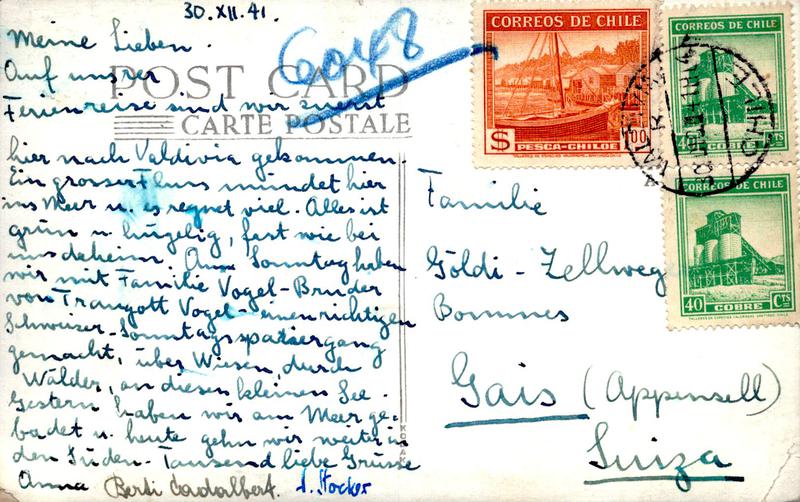 30.XII.41.
Meine Lieben.
Auf unsrer
Ferienreise sind wir zuerst
hier nach Valdivia gekommen.
Ein grosser Fluss mündet hier
ins Meer u. es regnet viel. Alles ist
grün u. hügelig, fast wie bei
uns daheim. Am Sonntag haben
wir mit Familie Vogel-Bruder
von Traugott Vogel-einen richtigen
Schweizer-Sonntagsspaziergang
gemacht, über Wiesen, durch
Wälder, an diesen kleinen See.
Gestern haben wir am Meer ge-
badet u. heute gehn wir weiter in
den Süden. Tausend liebe Grüsse
Anna Berti
A. Stocker
POST CARD
CARTE POSTALE
6048
KODAK
CORREOS DE CHILE
$ 1.00
PESCA-CHILOE
CORREOS DE CHILE
40
CORREOS DE CHILE
40 CTS
COBRE
VALDIVIA
CHILE
Familie
Göldi-Zellweg
Bommes
Gais (Appenzell)
Suiza